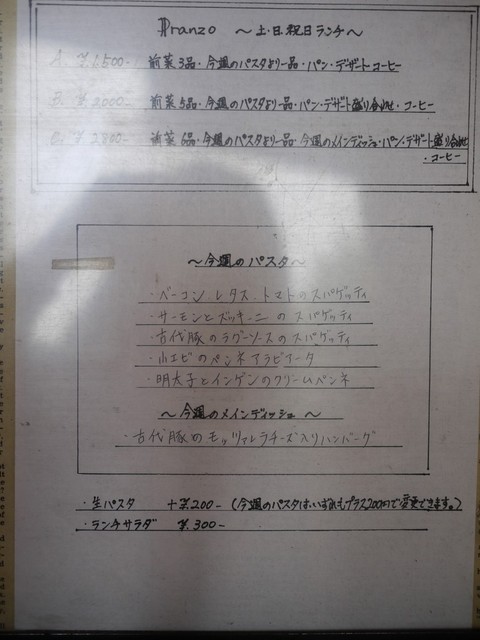 Pranzo ～土・日・祝日ランチ～
A. ¥1,500- 前菜3品・今週のパスタより一品・パン・デザート・コーヒー
B. ¥2000- 前菜5品・今週のパスタより一品・パン・デザート盛り合わせ・コーヒー
C. ¥2800- 前菜6品・今週のパスタより一品・今週のメインディッシュ・パン・デザート盛り合わせ
・コーヒー
～今週のパスタ～
・ベーコン、レタス、トマトのスパゲッティ
・サーモンとズッキーニのスパゲッティ
・古代豚のラグーソースのスパゲッティ
・小エビのペンネアラビアータ
・明太子とインゲンのクリームペンネ
～今週のメインディッシュ～
・古代豚のモッツァレラチーズ入りハンバーグ
・生パスタ +¥200- (今週のパスタはいずれもプラス200円で変更できます。)
・ランチサラダ ¥300-